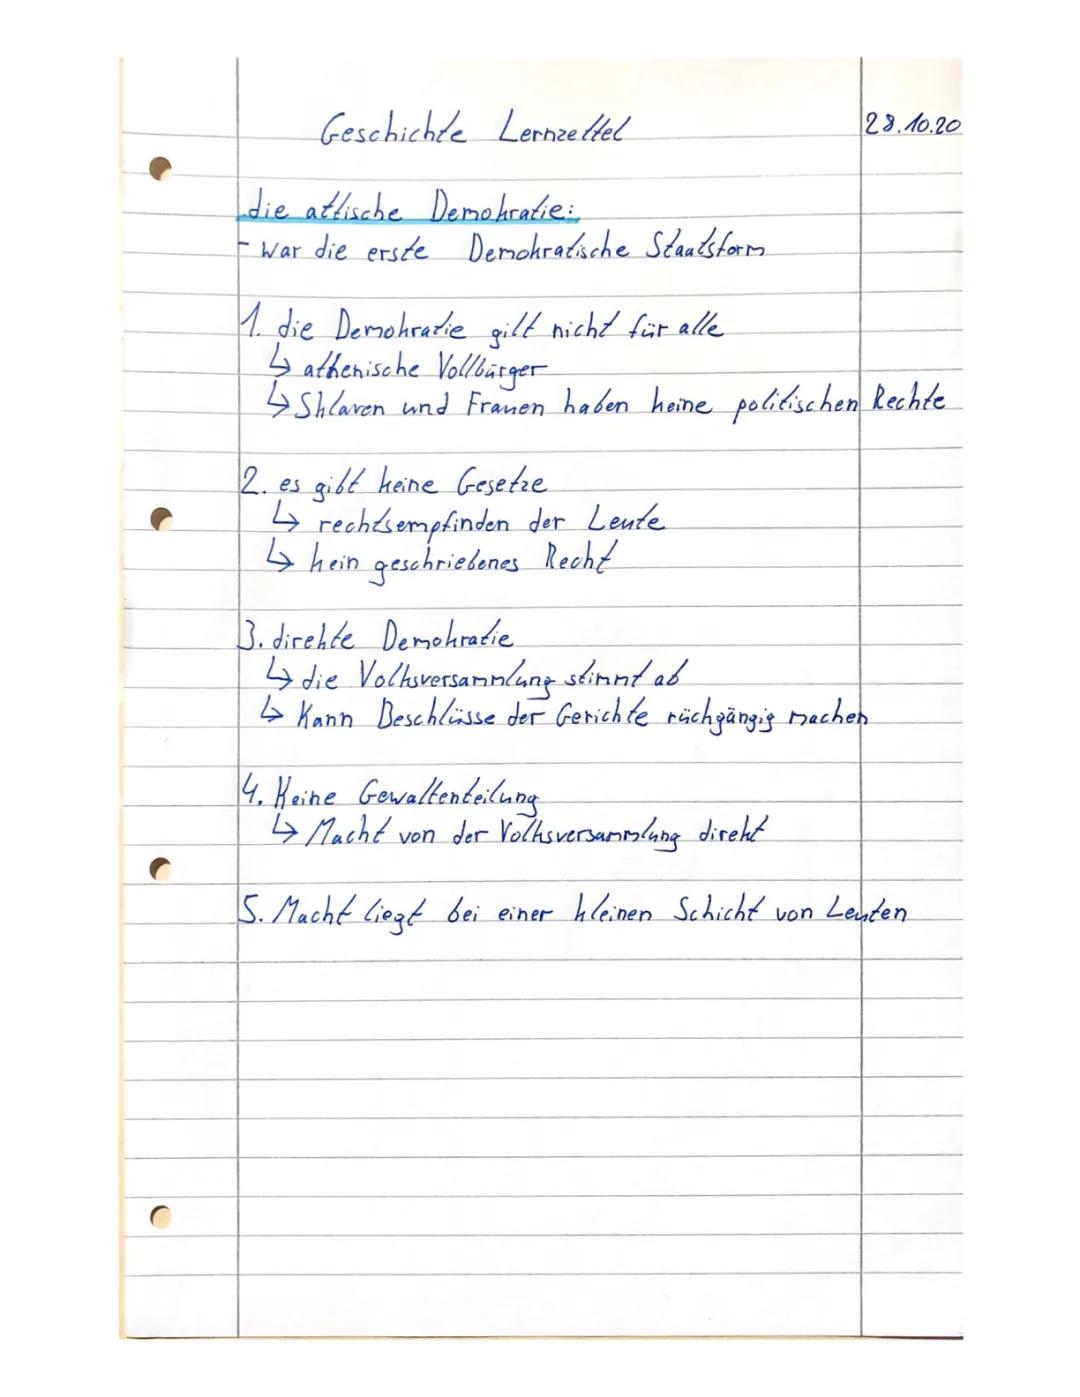 Geschichte Lernzettel
28.10.20
die attische Demokratie:
- war die erste Demokratische Staatsform
1. die Demokratie gilt nicht für alle
↳ athenische Vollbürger
↳ Sklaven und Frauen haben keine politischen Rechte
2. es gibt keine Gesetze
↳ rechtsempfinden der Leute
↳ kein geschriebenes Recht
3. direkte Demokratie
↳ die Volksversammlung stimmt ab
↳ Kann Beschlüsse der Gerichte rückgängig machen
4. Keine Gewaltenteilung
↳ Macht von der Volksversammlung direkt
5. Macht liegt bei einer kleinen Schicht von Leuten